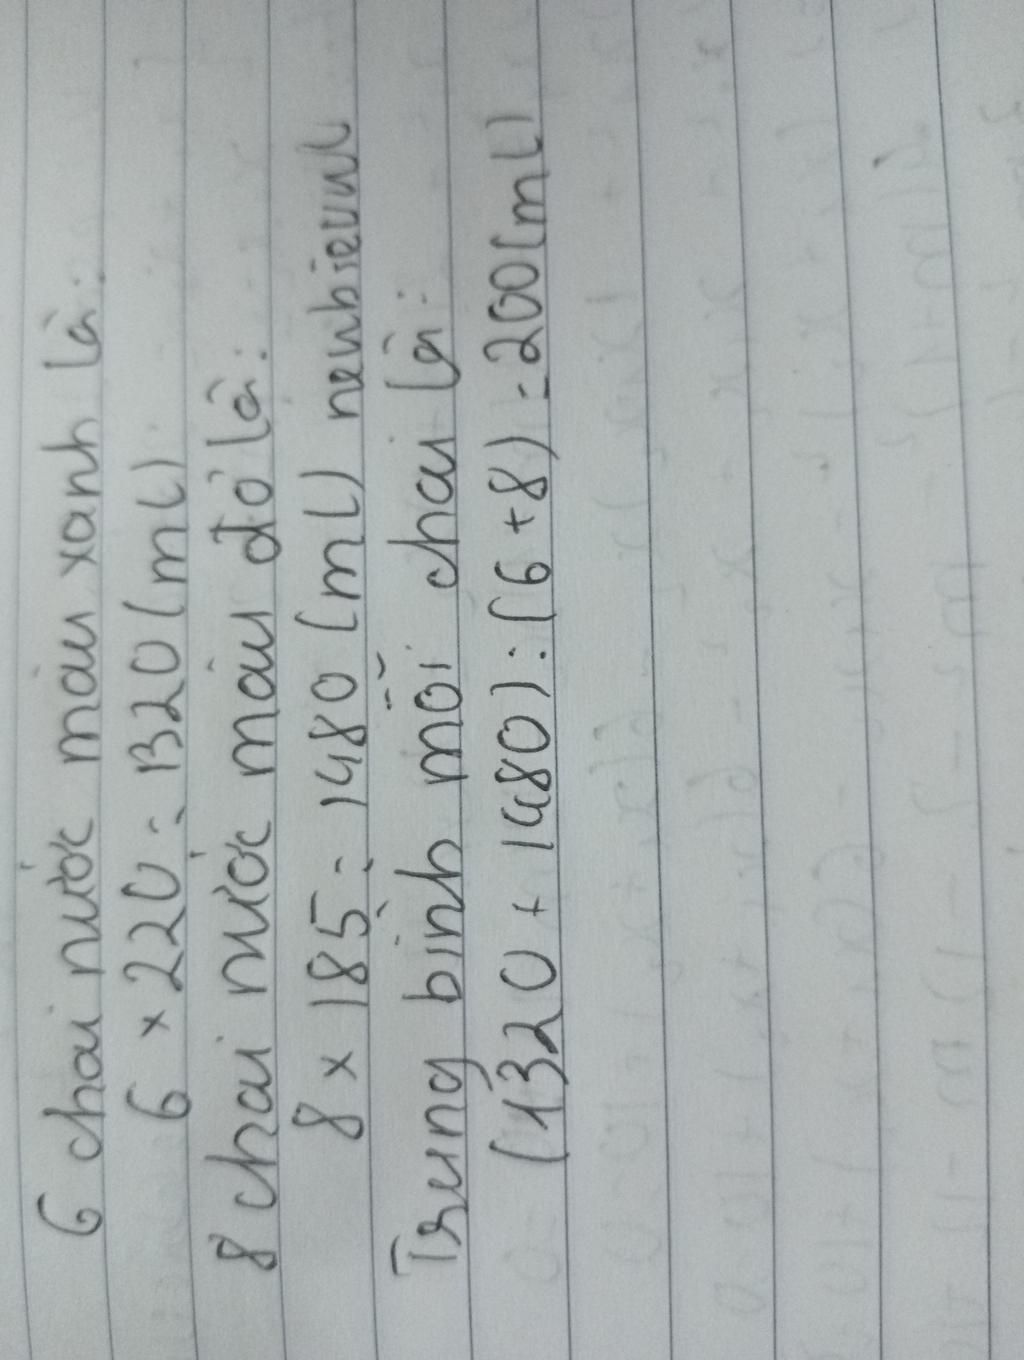 6 chai nước màu xanh là:
6 × 220 = 1320 (ml)
8 chai nước màu đỏ là:
8 × 185 = 1480 (ml)
Trung bình mỗi chai là:
(1320 + 1480) : (6 + 8) = 200 (ml)